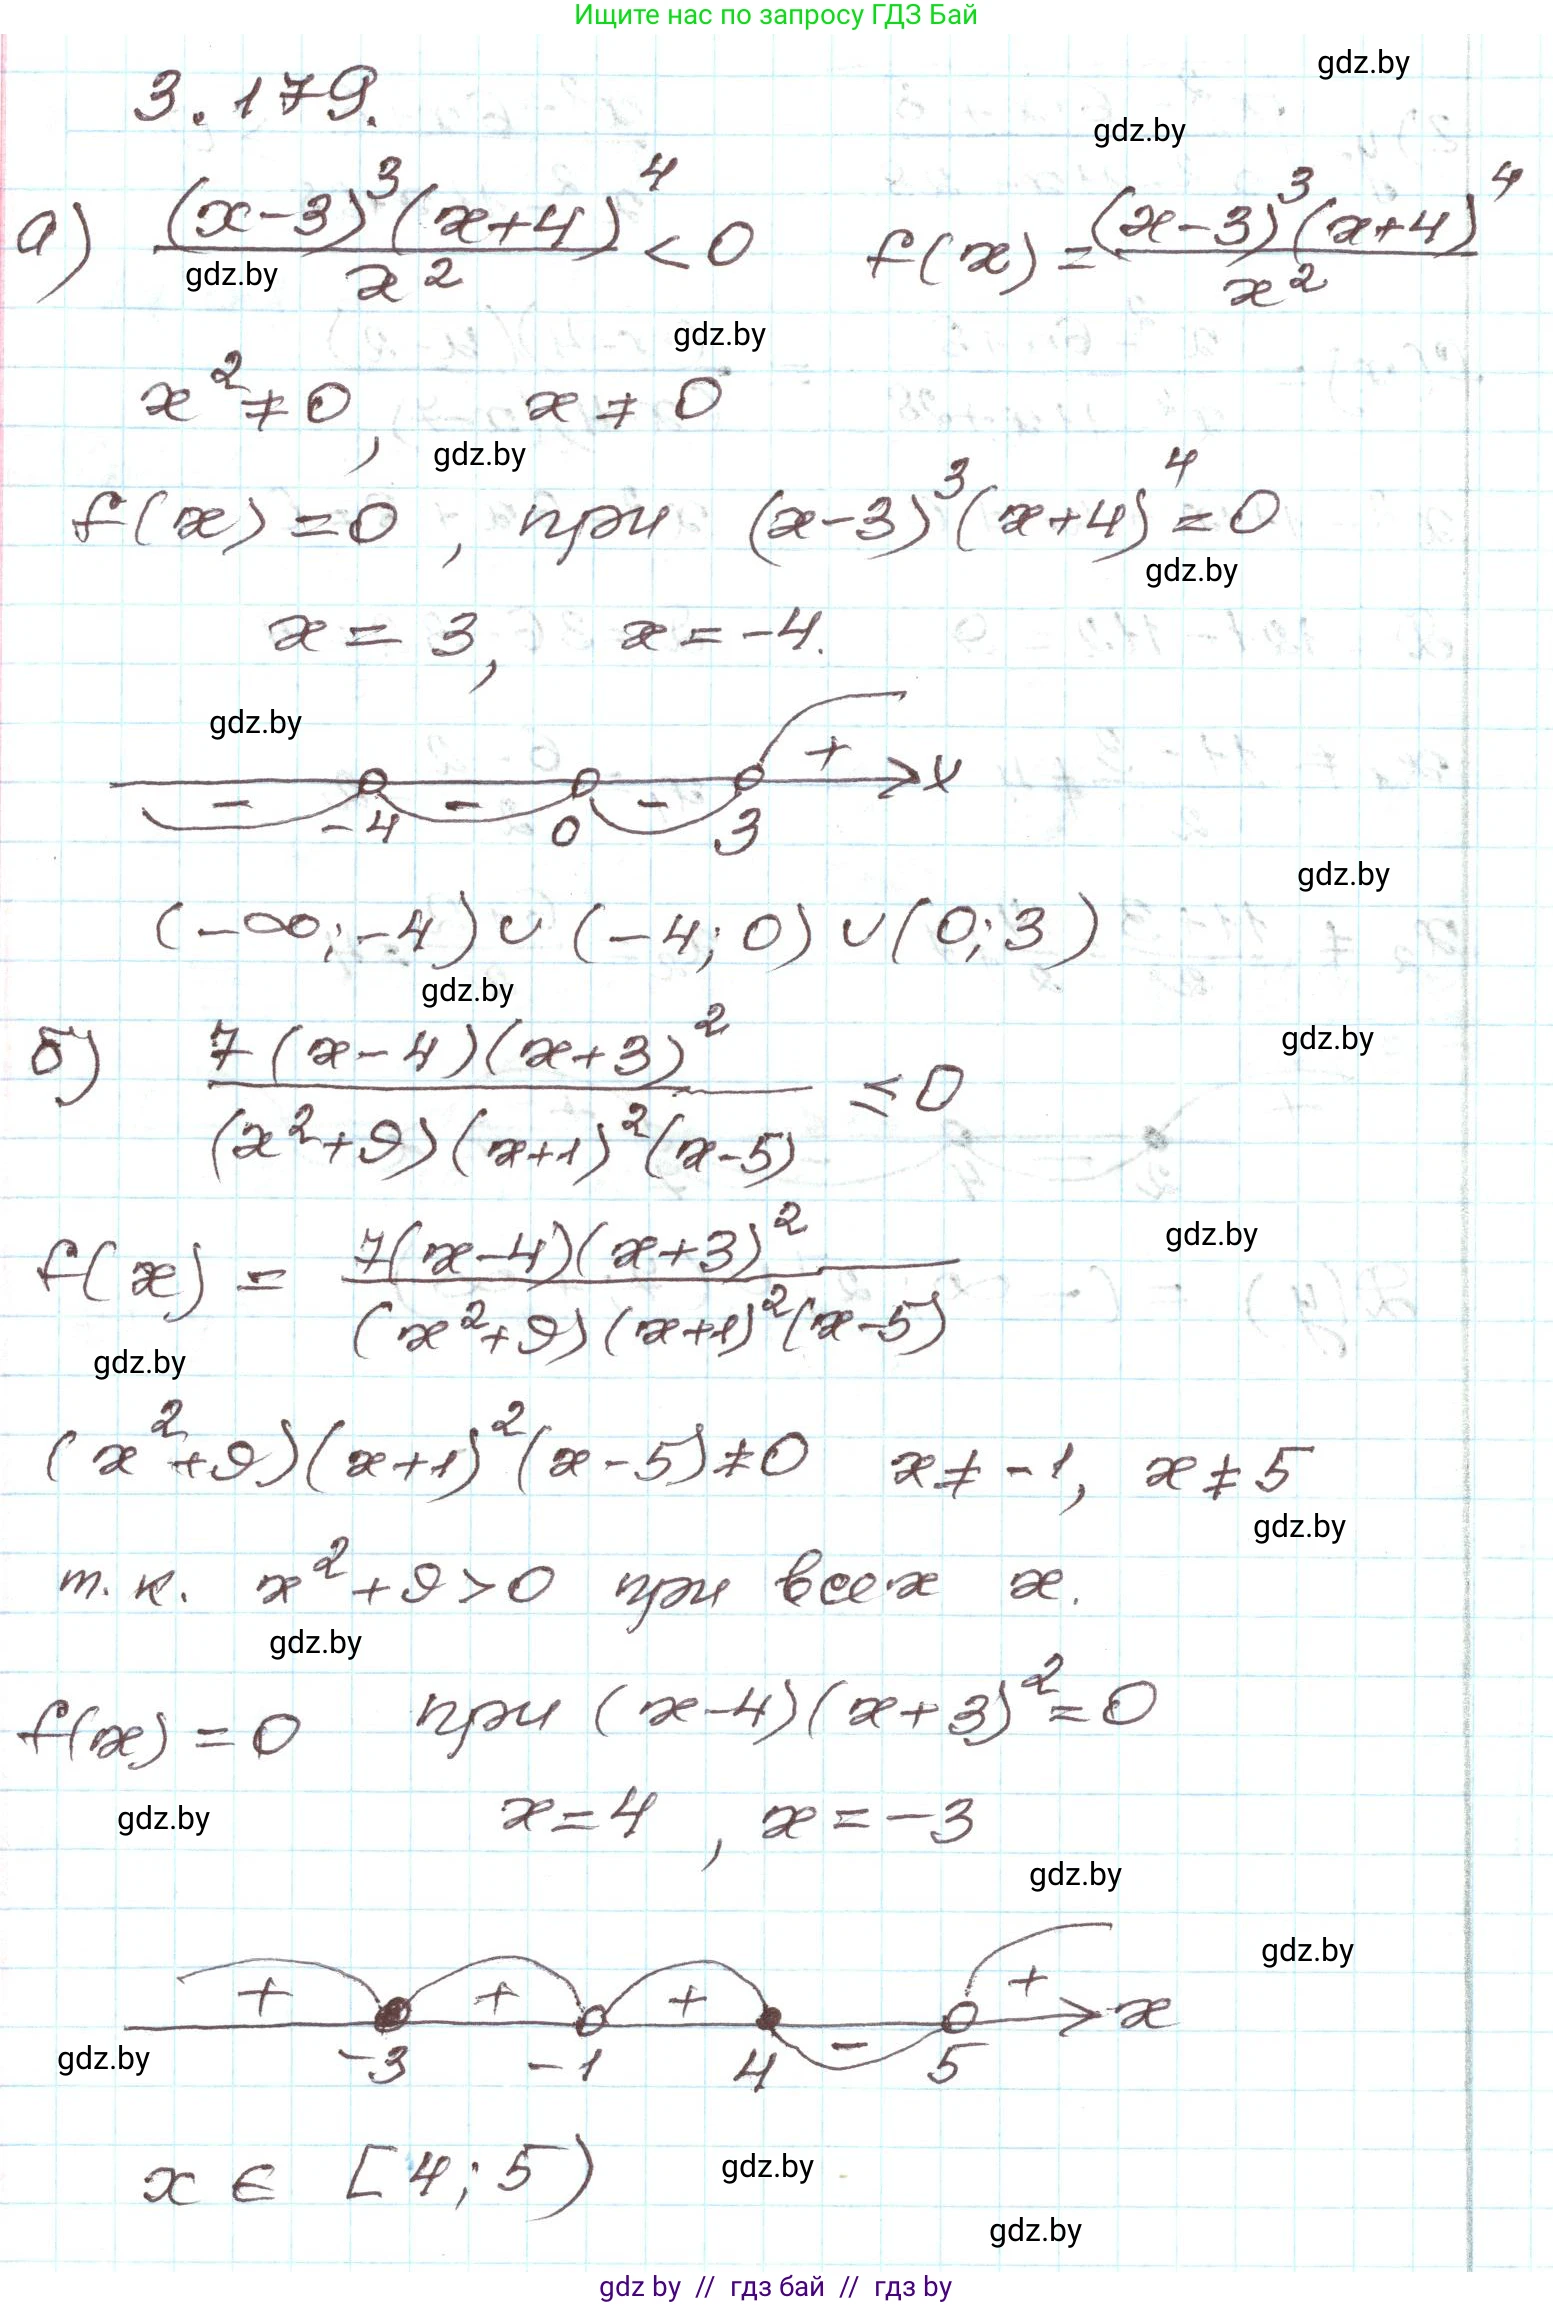 Ищите нас по запросу ГДЗ Бай
gdz.by
3.179.
gdz.by
а) (x-3)³(x+4)⁴ / x² < 0   f(x) = (x-3)³(x+4)⁴ / x²
gdz.by
gdz.by
x² ≠ 0, x ≠ 0
gdz.by
f(x) = 0, при (x-3)³(x+4)⁴ = 0
gdz.by
x = 3, x = -4.
gdz.by
- - - + x
-4 0 3
gdz.by
(-∞; -4) ∪ (-4; 0) ∪ (0; 3)
gdz.by
gdz.by
б) 7(x-4)(x+3)² / (x²+9)(x+1)²(x-5) ≤ 0
gdz.by
f(x) = 7(x-4)(x+3)² / (x²+9)(x+1)²(x-5)
gdz.by
(x²+9)(x+1)²(x-5) ≠ 0 x ≠ -1, x ≠ 5
gdz.by
т.к. x²+9 > 0 при всех x.
gdz.by
f(x) = 0 при (x-4)(x+3)² = 0
gdz.by
x = 4, x = -3
gdz.by
gdz.by
+ + + - + x
-3 -1 4 5
gdz.by
x ∈ [4; 5)
gdz.by
gdz.by
gdz by // гдз бай // гдз by